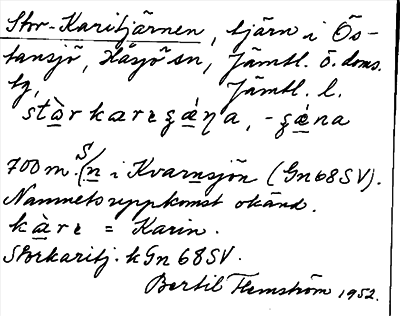 Stor-Karitjärnen, tjärn i Ös-
tansjö, Häsjö sn, Jämtl. ö. doms.
tg, Jämtl. l.
700 m. S/n i Kvarnsjön (Gn 68 SV).
Namnets uppkomst okänd.
= Karin.
Storkaritj. kGn 68 SV.
Bertil Flemström 1952.